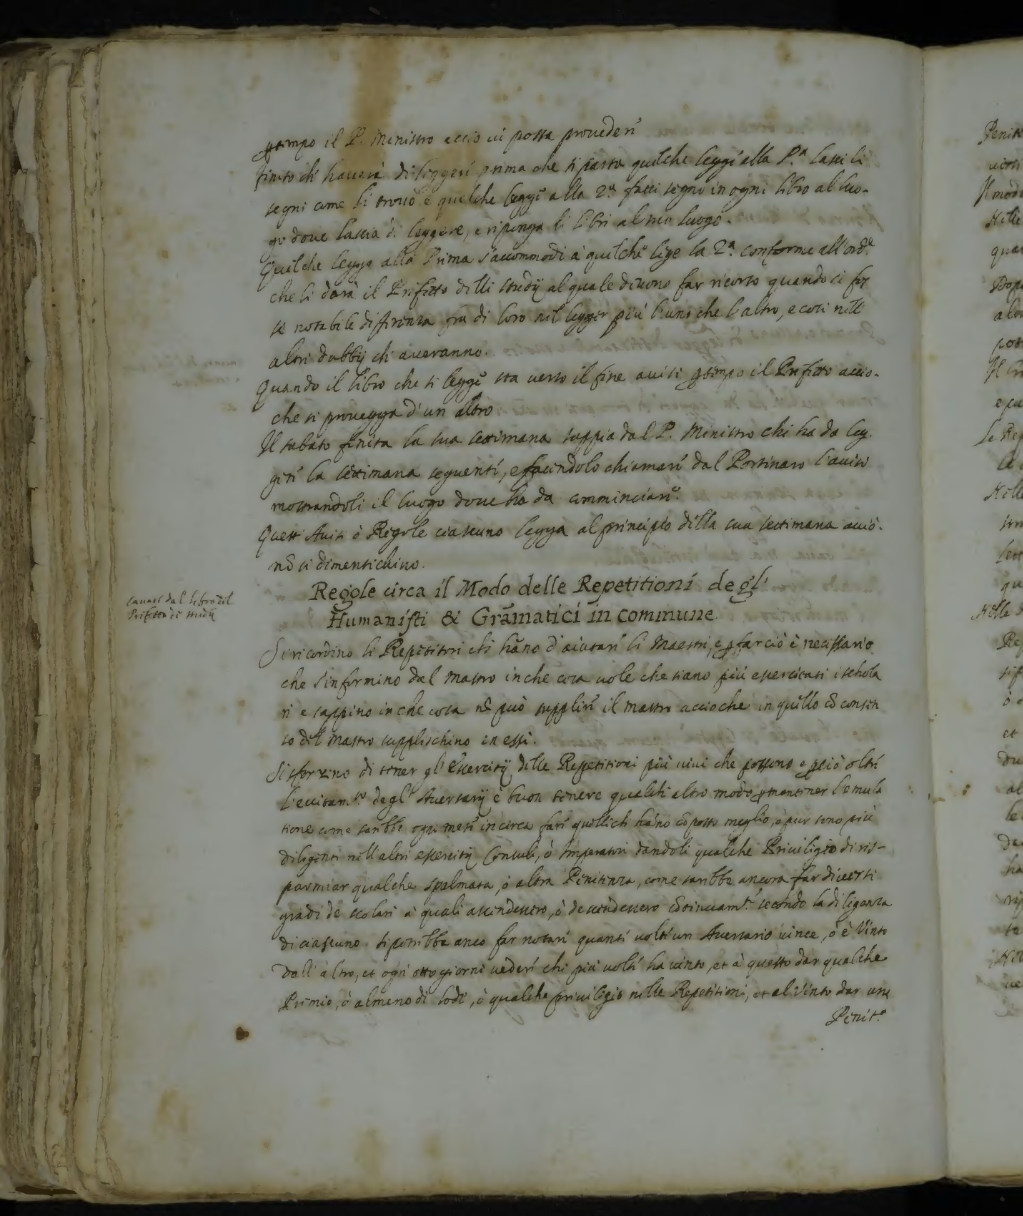 tempo il P. Ministro acciò ui possa prouedere
finito ch' hauerà di leggere prima che si parta quel che legge alla P.ª lasci li
segni come li trouò e quel che legge alla 2.ª facci segno in ogni libro al luo-
go doue lascia di leggere, e riponga li libri al suo luogo.
Quel che legge alla Prima s'accommodi à quel che lege la 2.ª conforme all'ord.e
che li darà il Prefetto delli studij al quale deuono far ricorso quando ci fos
se notabile differenza tra di loro nel legger più l'uno che l'altro, e così nelli
altri dubbij ch aueranno.
Quando il libro che si legge sta uerso il fine auisi per tempo il Prefetto accio-
che si prouegga d'un altro
Il sabato finita la sua settimana sappia dal P. Ministro chi ha da leg-
gere la settimana seguente, e facendolo chiamare dal Portinaro l'auisi
mostrandoli il luogo doue ha da comminciare.
Questi Auisi ò Regole ciascuno legga al principio della sua settimana acciò
nõ si dimentichino.
Cauate dal libro del
Prefetto de studij
Regole circa il Modo delle Repetitioni degl'
Humanisti & Grãmatici in commune.
Si ricordino li Repetitori che hãno d'aiutare li Maestri, e per far ciò è necessario
che s'informino dal mastro in che cosa uole che siano più essercitati i schola
ri e sappino in che cosa nõ può supplire il mastro accioche in quello cõ consen
so del mastro supplischino essi.
Si sforzino di tener gl'essercitij delle Repetitioni più uiui che possono e perciò oltre
l'euitam.to degl'Auersarij è buon tenere qualch altro modo per mantener l'emula
tione come sarebbe ogni mese incirca fare quelli ch hãno cõposto meglio, e pur sono più
diligenti nell'altri essercitij Consuli, ò Imperatori dandoli qualche Priuilegio di ris-
parmiar qualche spalmata, ò altra Penitenza, come sarebbe ancora far diuersi
gradi de scolari à quali ascendessero, ò descendessero cõtinuam.te secondo la diligenza
di ciascuno. si potrebbe anco far notare quante uolte un Auersario uince, ò è uinto
dall'altro, et ogni otto giorni uedere chi più uolte ha uinto, et à questo dar qualche
Premio, ò almeno di lode, ò qualche priuilegio nelle Repetitioni, et al uinto dar una
Penit.a